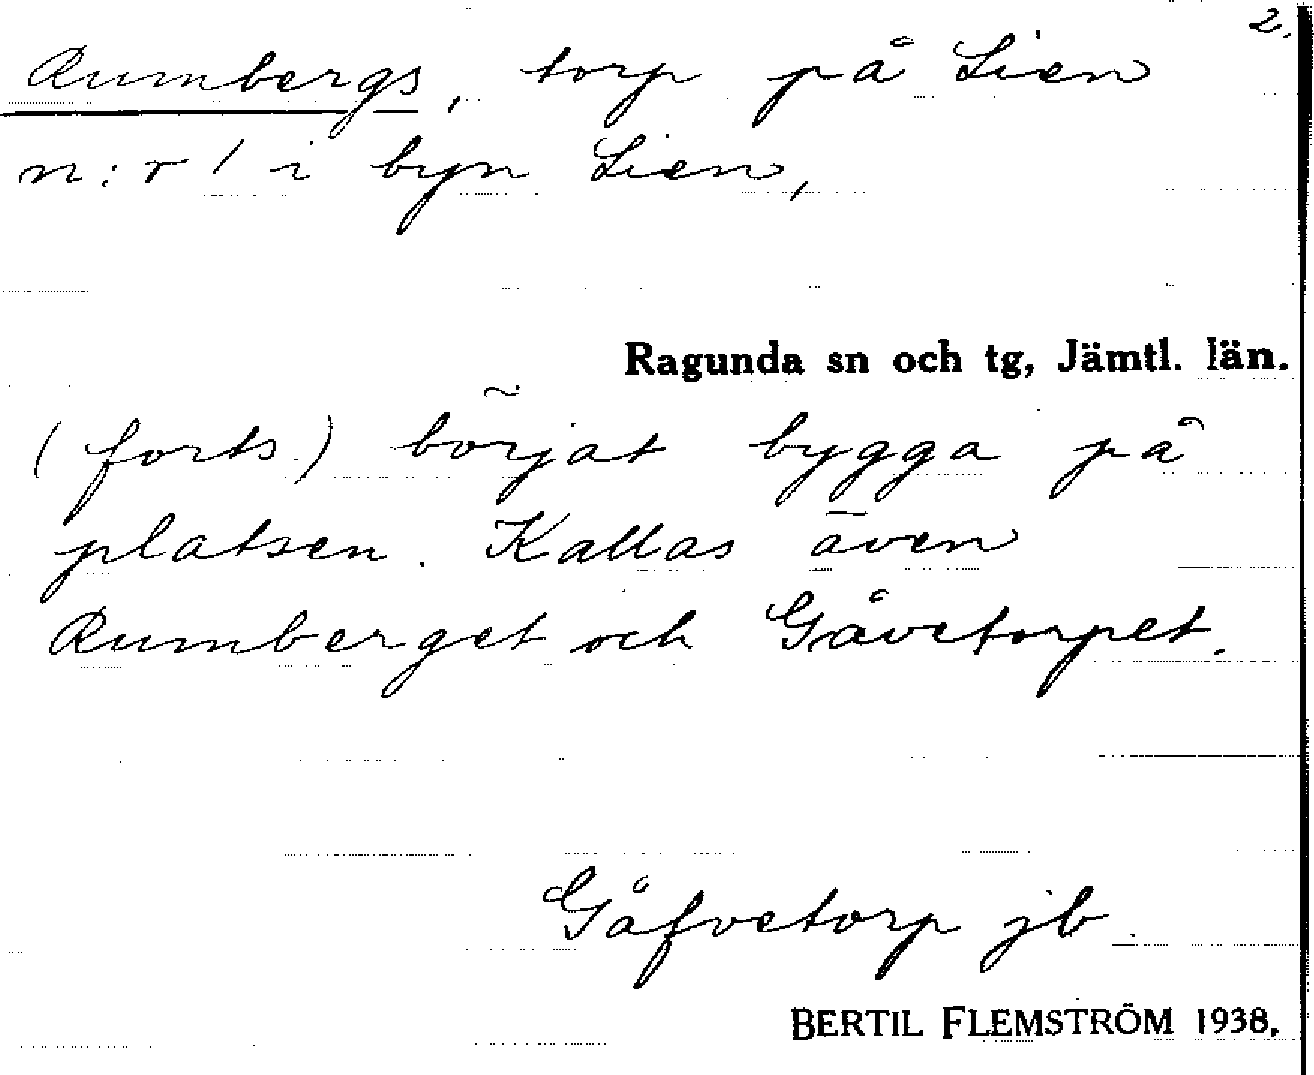 2.
Rumbergs, torp på Lien
n:r 1 i byn Lien,
Ragunda sn och tg, Jämtl. län.
(forts.) börjat bygga på
platsen. Kallas även
Rumberget och Gåvetorpet.
Gåfvetorp jb.
BERTIL FLEMSTRÖM 1938.